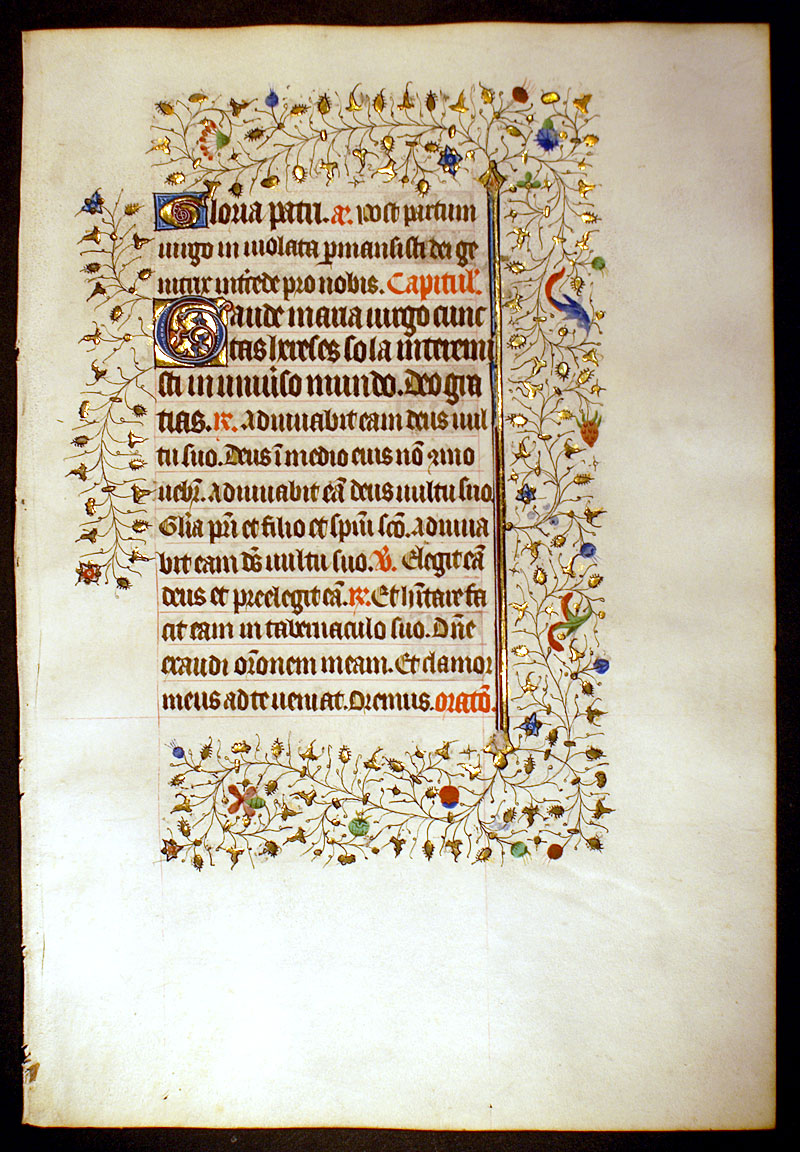 Gloria patri. añ. Post partum
uirgo in uiolata ꝑmansisti dei ge
nitrix int̾cede pro nobis. Capitul'.
Gaude maria uirgo cunc
tas hereses sola interemi
sti in uniu̾so mundo. Deo gra
tias. R̃. Adiuuabit eam deus uul
tu suo. Deus ī medio eius nō ꝯmo
uebr̃. Adiuuabit eā deus uultu suo.
Gl̃ia pr̃i et filio et spiũi sc̃o. Adiuua
bit eam ds̃ uultu suo. V̾. Elegit eā
deus et preelegit eā. R̃. Et hĩtare fa
cit eam in tabernaculo suo. Dñe
exaudi or̃onem meam. Et clamor
meus ad te ueniat. Oremus. oratō.